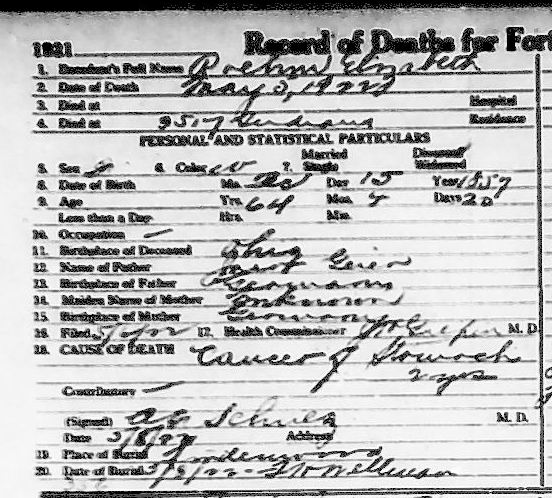 1921 Record of Deaths for Fort
1. Decedent's Full Name Roehm Elizabeth
2. Date of Death May 3, 1922
3. Died at Hospital
4. Died at 9517 Residence
PERSONAL AND STATISTICAL PARTICULARS
5. Sex 6. Color W 7. Married Single Divorced Widowed
8. Date of Birth Mo. Day 15 Year 1857
9. Age Yrs. 64 Mos. 4 Days 20
Less than a Day Hrs. Min.
10. Occupation —
11. Birthplace of Deceased Ohio
12. Name of Father Geier
13. Birthplace of Father Germany
14. Maiden Name of Mother Unknown
15. Birthplace of Mother Germany
16. Filed 17. Health Commissioner M. D.
18. CAUSE OF DEATH Cancer of Stomach
2 yrs
Contributory —
(Signed) M. D.
Date Address
19. Place of Burial Lindenwood
20. Date of Burial